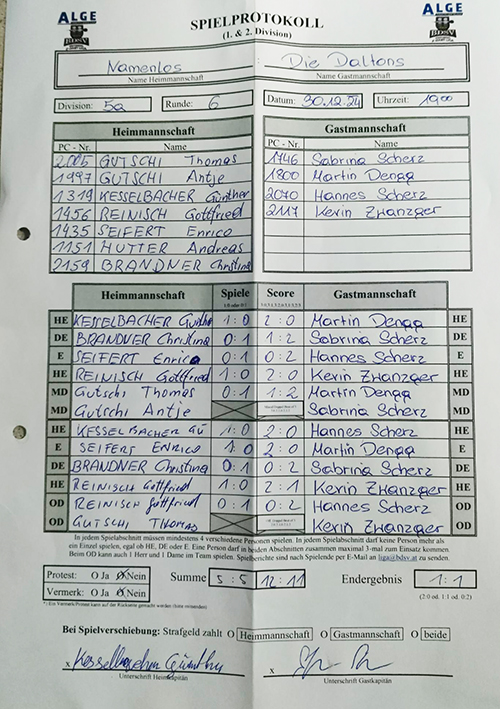 ALGE SPIELPROTOKOLL ALGE
BDSV (1. & 2. Division) BDSV
Namenlos : Die Daltons
Name Heimmannschaft Name Gastmannschaft
Division: 5a Runde: 6 Datum: 30.12.24 Uhrzeit: 1900
Heimmannschaft Gastmannschaft
PC - Nr. Name PC - Nr. Name
2005 GUTSCHI Thomas 1746 Sabrina Scherz
1997 GUTSCHI Antje 1800 Martin Dengg
1319 KESSELBACHER Günther 2070 Hannes Scherz
1456 REINISCH Gottfried 2117 Kevin Zwanzger
1435 SEIFERT Enrico
1151 HUTTER Andreas
2159 BRANDNER Christina
Heimmannschaft Spiele Score Gastmannschaft
1:0 oder 0:1
HE KESSELBACHER Günther 1:0 2:0 Martin Dengg HE
DE BRANDNER Christina 0:1 1:2 Sabrina Scherz DE
E SEIFERT Enrico 0:1 0:2 Hannes Scherz E
HE REINISCH Gottfried 1:0 2:0 Kevin Zwanzger HE
MD Gutschi Thomas 0:1 1:2 Martin Dengg MD
MD Gutschi Antje Sabrina Scherz MD
HE KESSELBACHER GÜ 1:0 2:0 Hannes Scherz HE
E SEIFERT ENRICO 1:0 2:0 Martin Dengg E
DE BRANDNER Christina 0:1 0:2 Sabrina Scherz DE
HE REINISCH Gottfried 1:0 2:1 Kevin Zwanzger HE
OD REINISCH Gottfried 0:1 0:2 Hannes Scherz OD
OD GUTSCHI THOMAS Kevin Zwanzger OD
In jedem Spielabschnitt müssen mindestens 4 verschiedene Personen spielen. In jedem Spielabschnitt darf keine Person mehr als
ein Einzel spielen, egal ob HE, DE oder E. Eine Person darf in beiden Abschnitten zusammen maximal 3-mal zum Einsatz kommen.
Beim OD kann auch 1 Herr und 1 Dame im Team spielen. Spielberichte sind nach Spielende per E-Mail an liga@bdsv.at zu senden.
Protest: O Ja O Nein Summe 5:5 12:11 Endergebnis 1:1
Vermerk: O Ja O Nein (2:0 od. 1:1 od. 0:2)
*: Ein Vermerk/Protest kann auf der Rückseite gemacht werden (bitte ankreuzen)
Bei Spielverschiebung: Strafgeld zahlt O Heimmannschaft O Gastmannschaft O beide
x Kesselbacher Günther x
Unterschrift Heimkapitän Unterschrift Gastkapitän